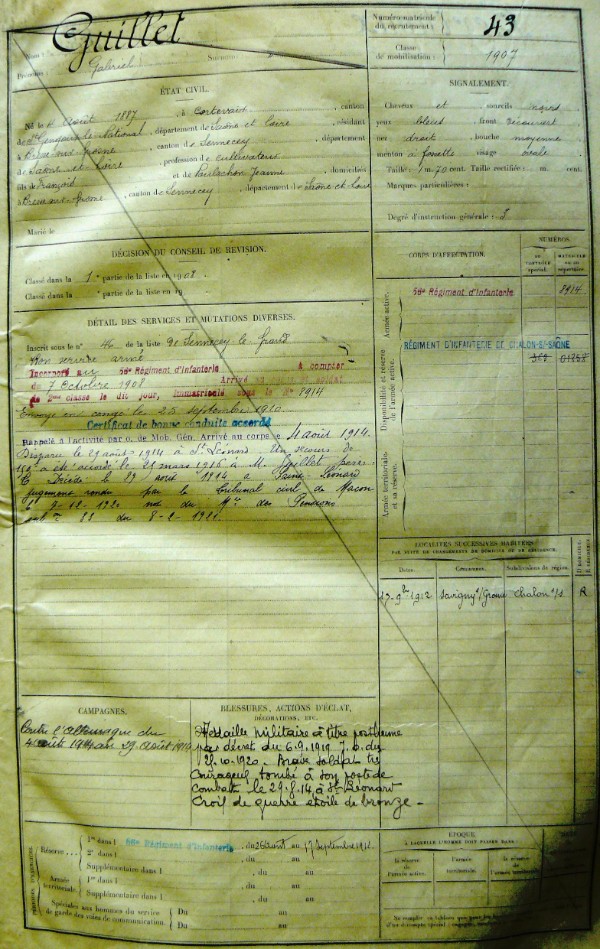 Guillet
Nom :
Prénoms : Gabriel
Surnoms :
Numéro matricule
du recrutement :
43
Classe
de mobilisation :
1907
ÉTAT CIVIL.
Né le Août 1887, à Cortevaix, canton
de St Gengoux-le-National, département de Saône et Loire, résidant
à canton de Sennecey, département
de Saône-et-Loire, profession de cultivateur
fils de François et de Jeanne, domiciliés
à canton de Sennecey, département de Saône et Loire
Marié le
SIGNALEMENT.
Cheveux et sourcils
yeux bleus front
nez droit bouche moyenne
menton à fossette visage ovale
Taille : 1 m. 70 cent. Taille rectifiée : m. cent.
Marques particulières :
Degré d'instruction générale : 3
DÉCISION DU CONSEIL DE REVISION.
Classé dans la 1e partie de la liste en 1908.
Classé dans la e partie de la liste en 19
DÉTAIL DES SERVICES ET MUTATIONS DIVERSES.
Inscrit sous le n° 46 de la liste de Sennecey le Grand
Bon service armé
Incorporé au 56e Régiment d'Infanterie à compter
du 7 Octobre 1908 Arrivé au corps et soldat
de 2ème classe le dit jour, immatriculé sous le N° 8914
Envoyé en congé le 25 septembre 1910
Certificat de bonne conduite accordé
Rappelé à l'activité par o. de Mob. Gén. Arrivé au corps le 4 août 1914.
Disparu le 29 août 1914 à St Léonard Un secours de
150 a été accordé le 21 mars 1916 à M. Guillet père
Décédé le 29 août 1914 à Saint Léonard
Jugement rendu par le tribunal civil de Macon
le 9-12-1920 du Mre des Pensions
du 8-2-1921
CORPS D'AFFECTATION.
NUMÉROS.
AU CONTRÔLE spécial.
MATRICULE ou au répertoire.
Armée active.
56e Régiment d'Infanterie
8914
Disponibilité et réserve
de l'armée active.
RÉGIMENT D'INFANTERIE DE CHALON-S/-SAÔNE
Armée territoriale
et sa réserve.
LOCALITÉS SUCCESSIVES HABITÉES
PAR SUITE DE CHANGEMENTS DE DOMICILE OU DE RÉSIDENCE.
Dates. Communes. Subdivisions de région.
D domicile.
R résidence.
17-9bre 1912 Savigny s/ Grosne Chalon s/s R
CAMPAGNES.
Contre l'Allemagne du
4 août 1914 au 29 août 1914
BLESSURES, ACTIONS D'ÉCLAT,
DÉCORATIONS, ETC.
Médaille militaire à titre posthume
par décret du 6.9.1919 J.O. du
10-1920. Brave soldat très
courageux tombé à son poste de
combat le 29.8.14 à St Léonard
Croix de guerre étoile de bronze -
PÉRIODES D'EXERCICES
Réserve
1re dans l 56e Régiment d'Infanterie, du 26 août au 17 Septembre 1912
2e dans l , du au
Supplémentaire dans l , du au
Armée
territoriale
1re dans l , du au
Supplémentaire dans l , du au
Spéciales aux hommes du service
de garde des voies de communication.
Du au
Du au
ÉPOQUE
À LAQUELLE L'HOMME DOIT PASSER DANS :
la réserve
de l'armée active.
l'armée
territoriale.
la réserve
de l'armée
territoriale.